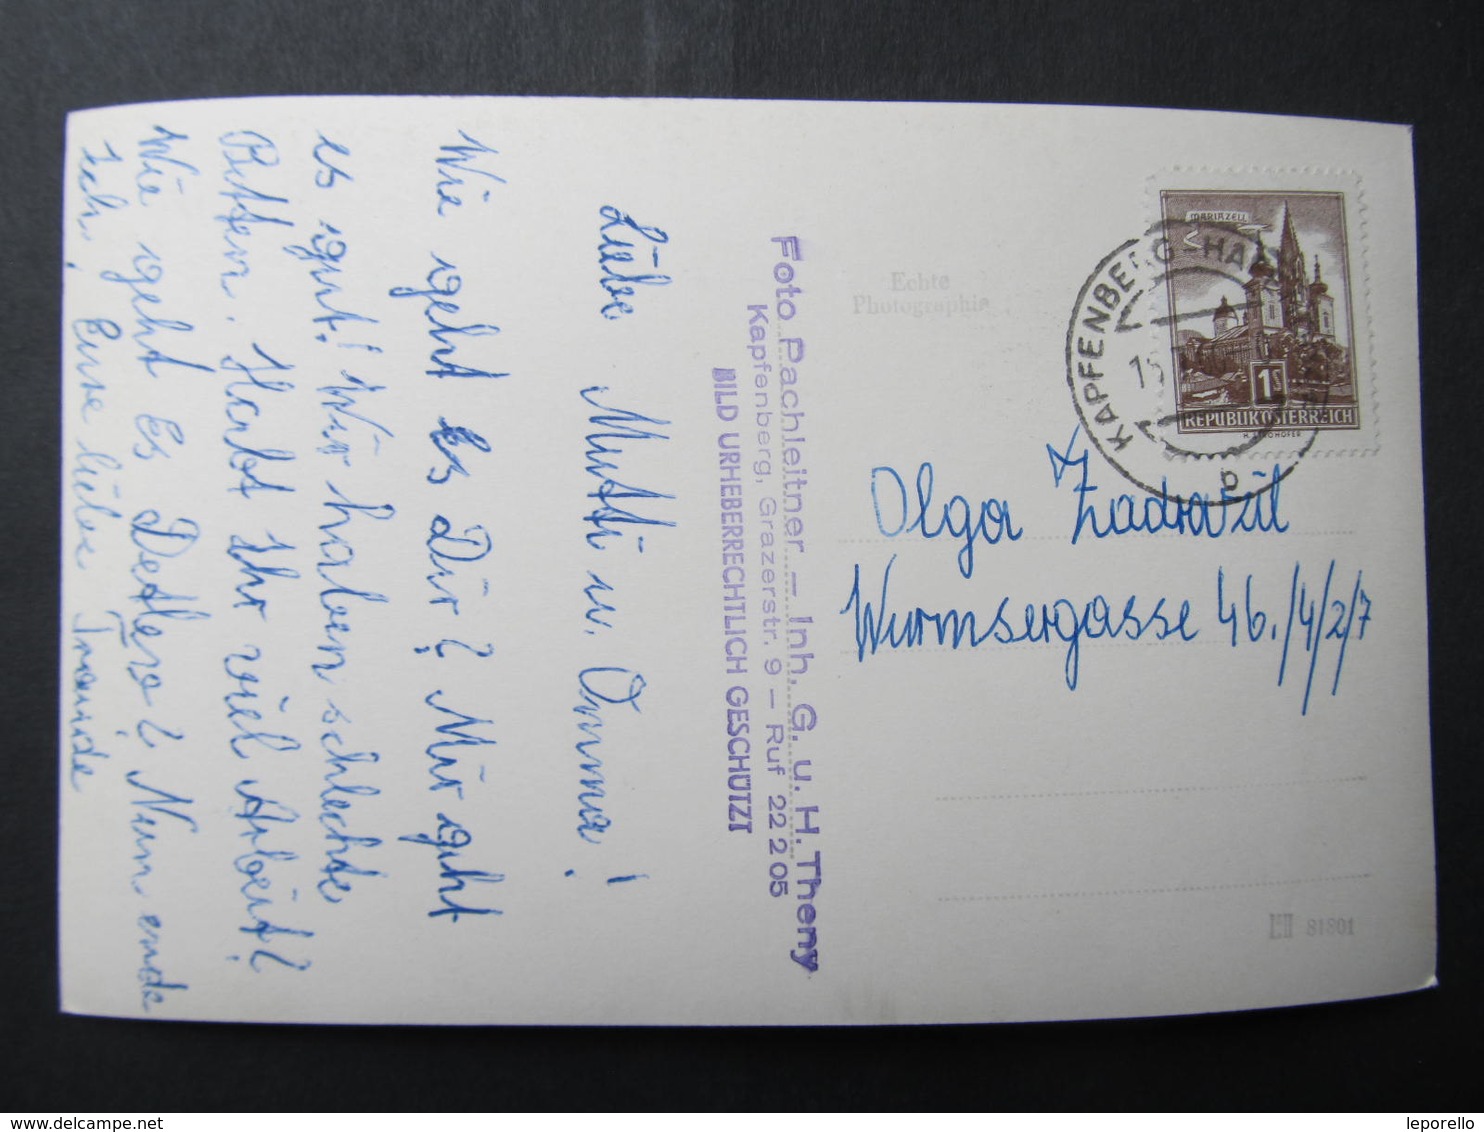 Liebe Mutti u. Omma!
Wie geht es Dir? Mir geht
es gut! Wir haben schlechte
Betten. Habt Ihr viel Arbeit?
Wie geht es Detlero? Nun ende
ich, Eure liebe Traude
Foto Pachleitner — Inh. G. u. H. Theny
Kapfenberg, Grazerstr. 9 — Ruf 22 2 05
BILD URHEBERRECHTLICH GESCHÜTZT
Echte
Photographie
MARIAZELL
1S
REPUBLIK ÖSTERREICH
KAPFENBERG-HA
15
b
Olga Zadrazil
Wurmsergasse 46./4/2/7
81801
leporello